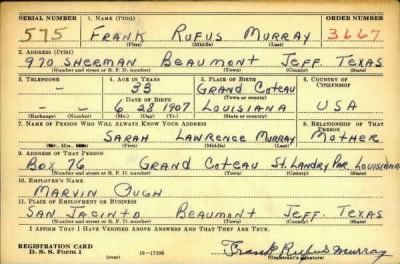 SERIAL NUMBER 1. NAME (Print) ORDER NUMBER
575 FRANK RUFUS MURRAY 3667
(First) (Middle) (Last)
2. ADDRESS (Print)
970 SHERMAN BEAUMONT JEFF. TEXAS
(Number and street or R. F. D. number) (Town) (County) (State)
3. TELEPHONE 4. AGE IN YEARS 5. PLACE OF BIRTH 6. COUNTRY OF CITIZENSHIP
- 33 GRAND COTEAU
DATE OF BIRTH (Town or county)
- - 6 28 1907 LOUISIANA USA
(Exchange) (Number) (Mo.) (Day) (Yr.) (State or country)
7. NAME OF PERSON WHO WILL ALWAYS KNOW YOUR ADDRESS 8. RELATIONSHIP OF THAT PERSON
SARAH LAWRENCE MURRAY MOTHER
(Mr., Mrs., Miss) (First) (Middle) (Last)
9. ADDRESS OF THAT PERSON
BOX 76 GRAND COTEAU St. LANDRY PAR. LOUISIANA
(Number and street or R. F. D. number) (Town) (County) (State)
10. EMPLOYER'S NAME
MARVIN PUGH
11. PLACE OF EMPLOYMENT OR BUSINESS
SAN JACINTO BEAUMONT JEFF. TEXAS
(Number and street or R. F. D. number) (Town) (County) (State)
I AFFIRM THAT I HAVE VERIFIED ABOVE ANSWERS AND THAT THEY ARE TRUE.
REGISTRATION CARD
D. S. S. FORM 1 16-17105 Frank Rufus Murray
(over) (Registrant's signature)